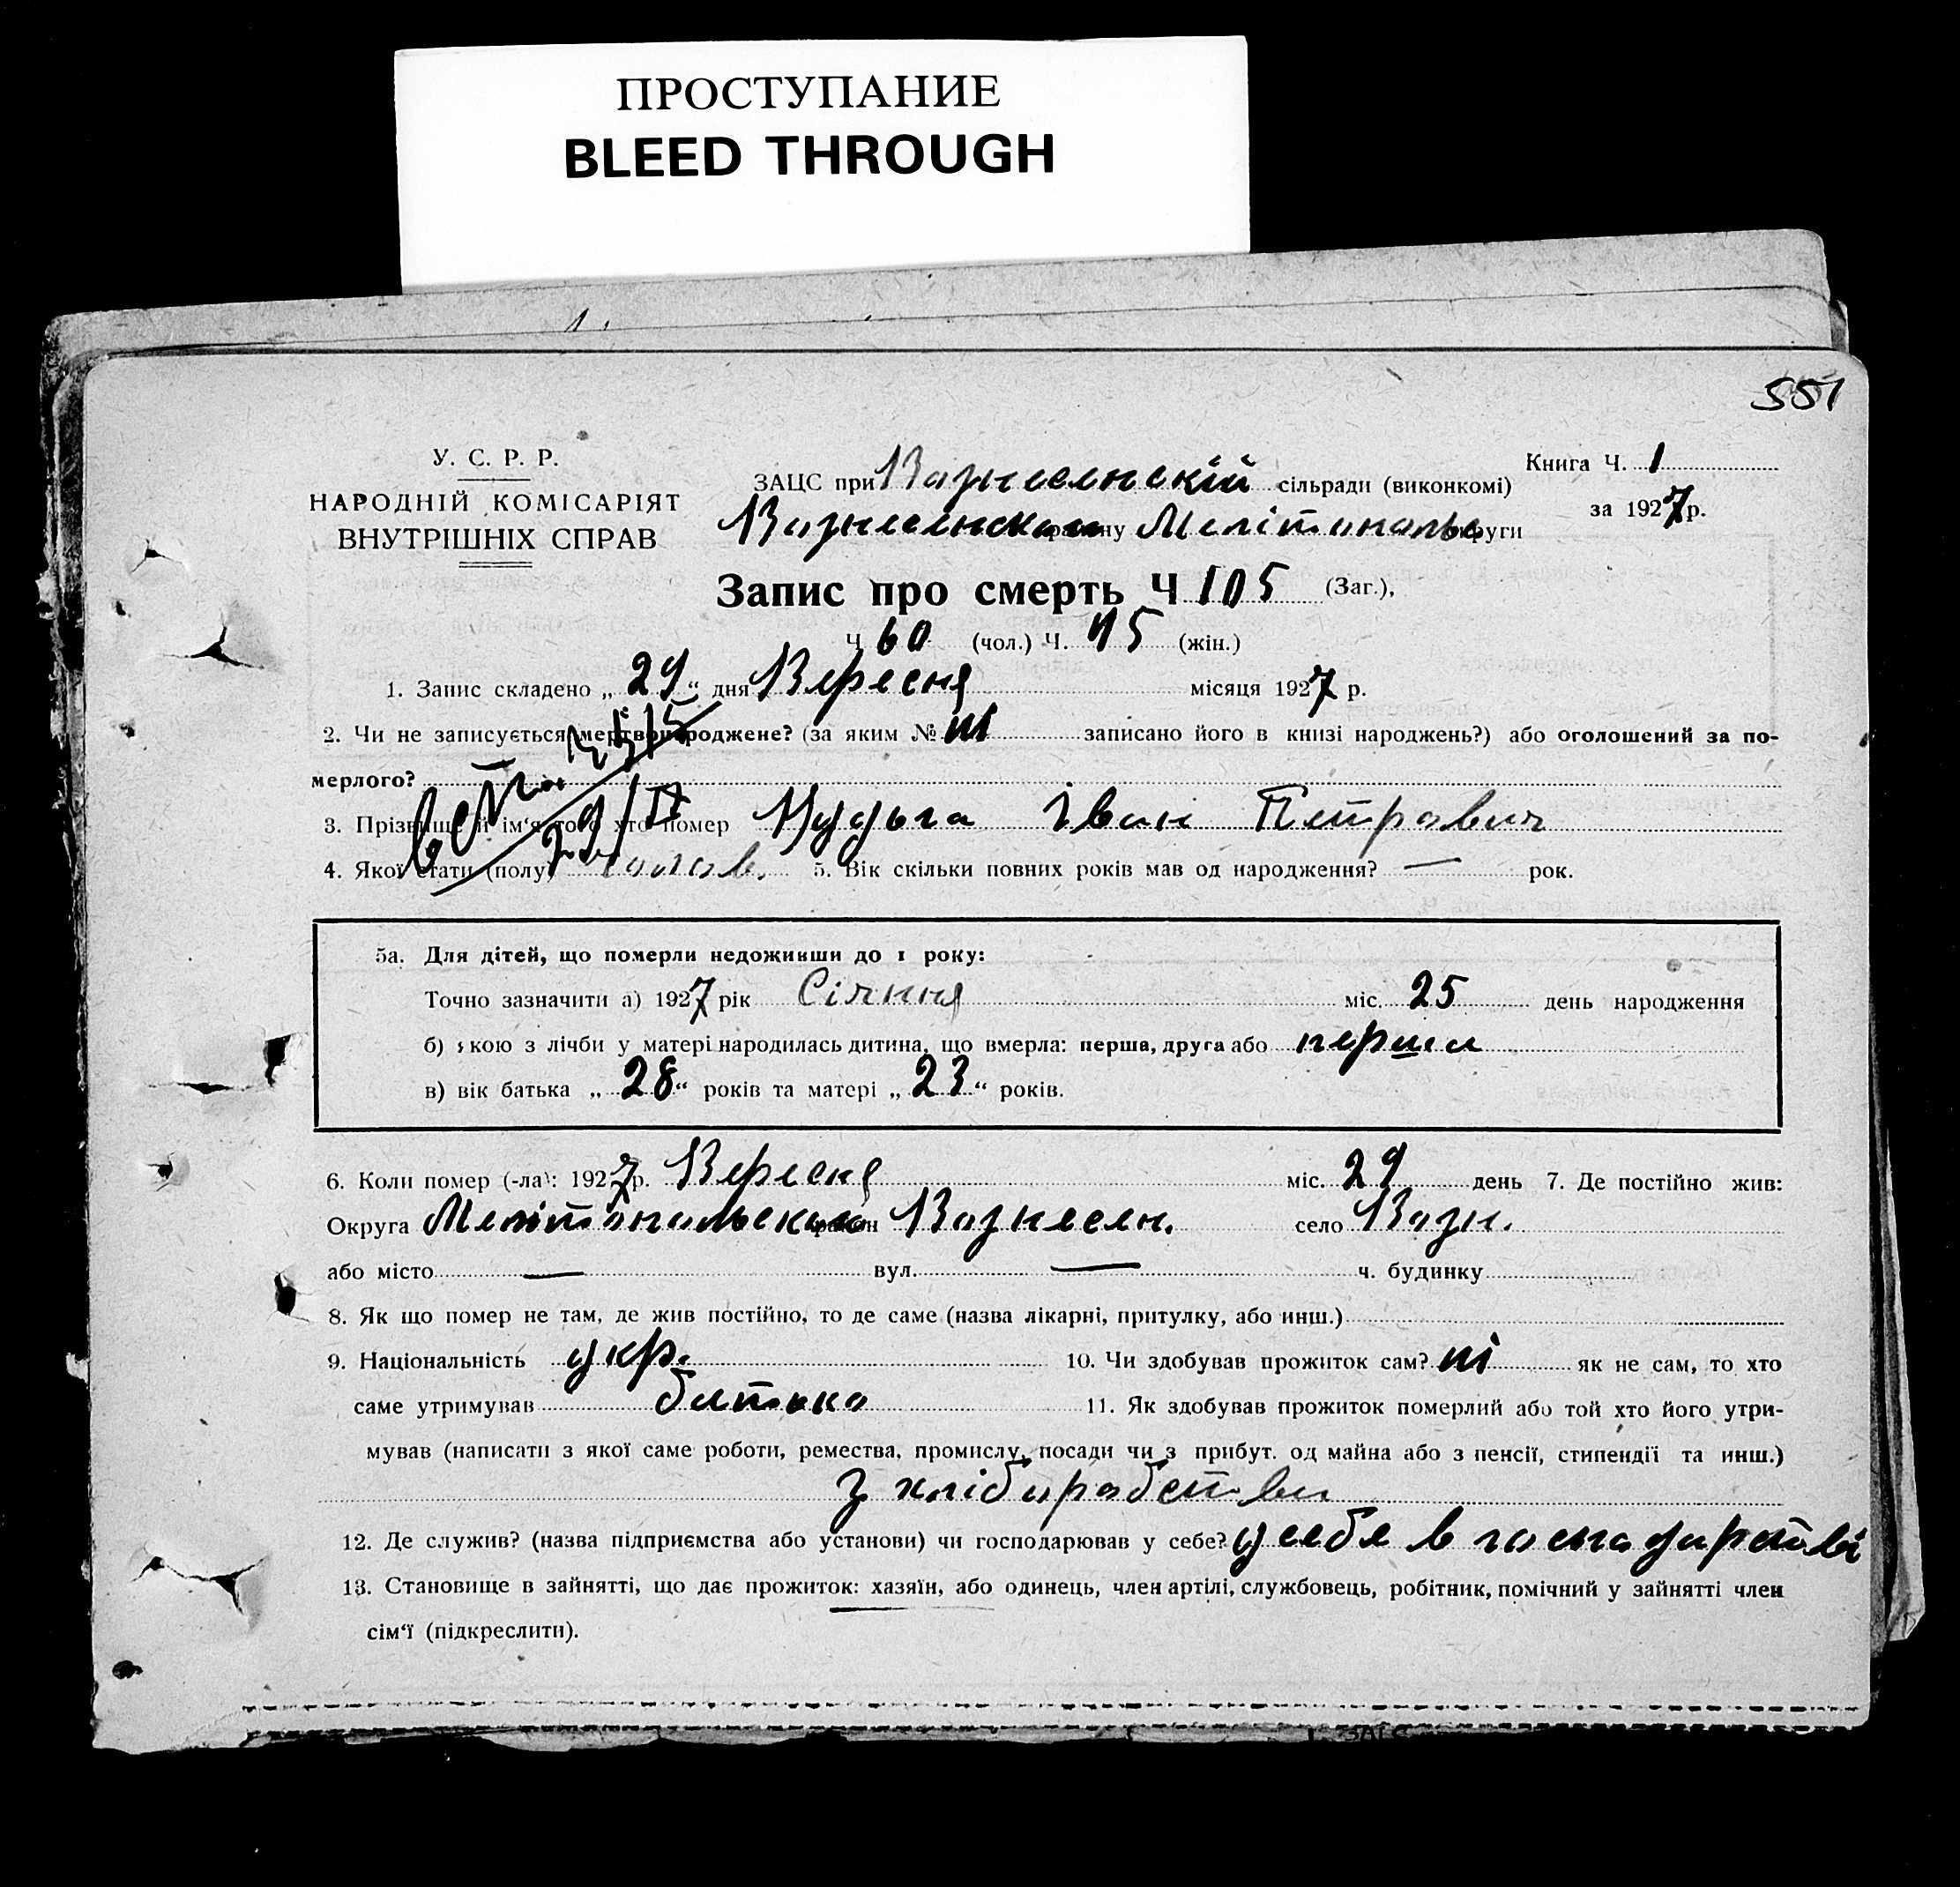 ПРОСТУПАНИЕ
BLEED THROUGH
1.
551
У. С. Р. Р.
НАРОДНІЙ КОМІСАРІЯТ
ВНУТРІШНІХ СПРАВ
ЗАЦС при Вознесенскій сільради (виконкомі)
Вознесенском району Мелітополь округи
Книга Ч. 1
за 1927 р.
Запис про смерть Ч 105 (Заг.),
Ч 60 (чол.) Ч. 45 (жін.)
1. Запис складено „ 29 “ дня Вересня місяця 1927 р.
2. Чи не записується мертвонароджене? (за яким № ні записано його в книзі народжень?) або оголошений за по-
мерлого?
3. Прізвище й ім‘я того хто помер Нудьга Іван Петрович
4. Якої стати (полу) чолов. 5. Вік скільки повних років мав од народження? — рок.
5а. Для дітей, що померли недоживши до 1 року:
Точно зазначити а) 1927 рік Січня міс. 25 день народження
б) якою з лічби у матері народилась дитина, що вмерла: перша, друга або перша
в) вік батька „ 28 “ років та матері „ 23 “ років.
6. Коли помер (-ла): 1927 р. Вересня міс. 29 день 7. Де постійно жив:
Округа Мелітопольськая район Вознесен. село Возн.
або місто — вул. — ч. будинку
8. Як що помер не там, де жив постійно, то де саме (назва лікарні, притулку, або инш.)
9. Національність укр. 10. Чи здобував прожиток сам? ні як не сам, то хто
саме утримував батько 11. Як здобував прожиток померлий або той хто його утри-
мував (написати з якої саме роботи, ремества, промислу, посади чи з прибут. од майна або з пенсії, стипендії та инш.)
з хліборобства
12. Де служив? (назва підприємства або установи) чи господарював у себе? у себе в господарстві
13. Становище в зайнятті, що дає прожиток: хазяїн, або одинець, член артілі, службовець, робітник, помічний у зайнятті член
сім‘ї (підкреслити).